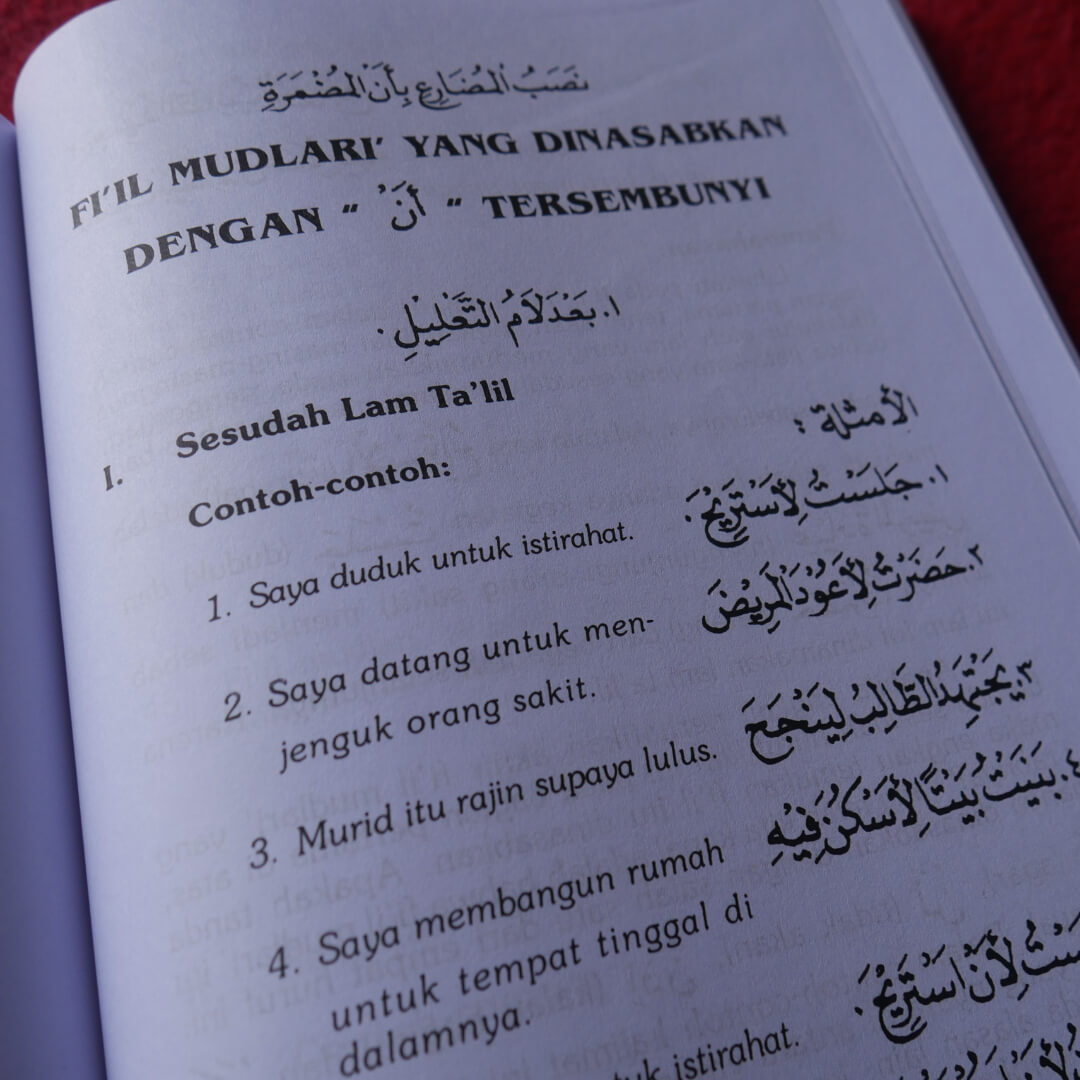 نَصَبُ الْمُضَارِعِ بِأَنْ الْمُضْمَرَةِ
FI'IL MUDLARI' YANG DINASABKAN
DENGAN " أَنْ " TERSEMBUNYI
١. بَعْدَ لَامُ التَّعْلِيلِ .
I. Sesudah Lam Ta'lil
Contoh-contoh:
الأمثلة :
1. Saya duduk untuk istirahat.
١. جَلَسْتُ لِأَسْتَرِيْحَ .
2. Saya datang untuk men-
jenguk orang sakit.
٢. حَضَرْتُ لِأَعُوْدَ الْمَرِيْضَ
3. Murid itu rajin supaya lulus.
٣. يَجْتَهِدُ الطَّالِبُ لِيَنْجَحَ
4. Saya membangun rumah
untuk tempat tinggal di
dalamnya.
٤. بَنَيْتُ بَيْتًا لِأَسْكُنَ فِيْهِ
istirahat.
لِأَنْ اَسْتَرِيْحَ .